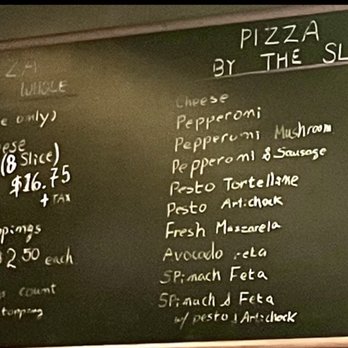 ZA
WHOLE
e only)
ese
(8 Slice)
$16.75
+ TAX
pings
$2.50 each
s count
topping
PIZZA
BY THE SL
Cheese
Pepperoni
Pepperoni Mushroom
Pepperoni & Sausage
Pesto Tortelline
Pesto Artichock
Fresh Mozzarela
Avocado feta
SPinach Feta
SPinach & Feta
w/ pesto & Artichock